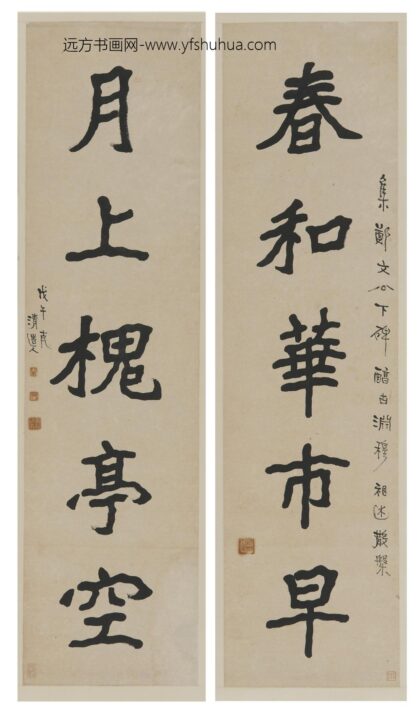 远方书画网-www.yfshuhua.com
集鄭文公下碑淵穆祖述散槃
春和華市早
月上槐亭空
戊午
清道人